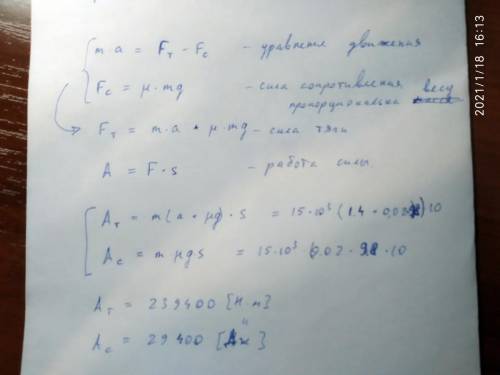 ma = Fт - Fc - уравнение движения
Fc = μ·mg - сила сопротивления, пропорциональна весу
Fт = m·a + μ·mg - сила тяги
A = F·s - работа силы.
Aт = m(a + μg)·s = 15·10³(1.4 + 0,02
)10
Ac = mμgs = 15·10³ · 0.02 · 9.8 · 10
Aт = 239400 [Н·м]
Ac = 29400 [Дж]
2021/1/18 16:13